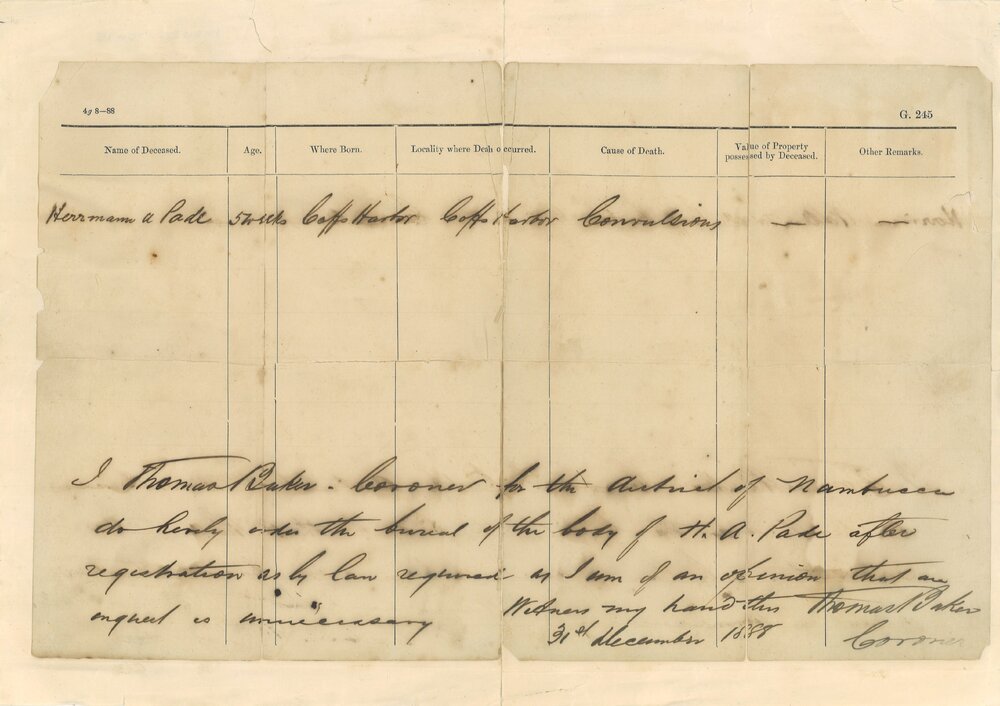 4g 8—88
G. 245
Name of Deceased. Age. Where Born. Locality where Death occurred. Cause of Death. Value of Property possessed by Deceased. Other Remarks.
Herrmann A Pade 5 weeks Coffs Harbor Coffs Harbor Convulsions — —
I Thomas Baker - Coroner for the district of Nambucca
do hereby order the burial of the body of H. A. Pade after
registration as by law required as I am of an opinion that an
inquest is unnecessary Witness my hand this Thomas Baker
31st December 1888 Coroner